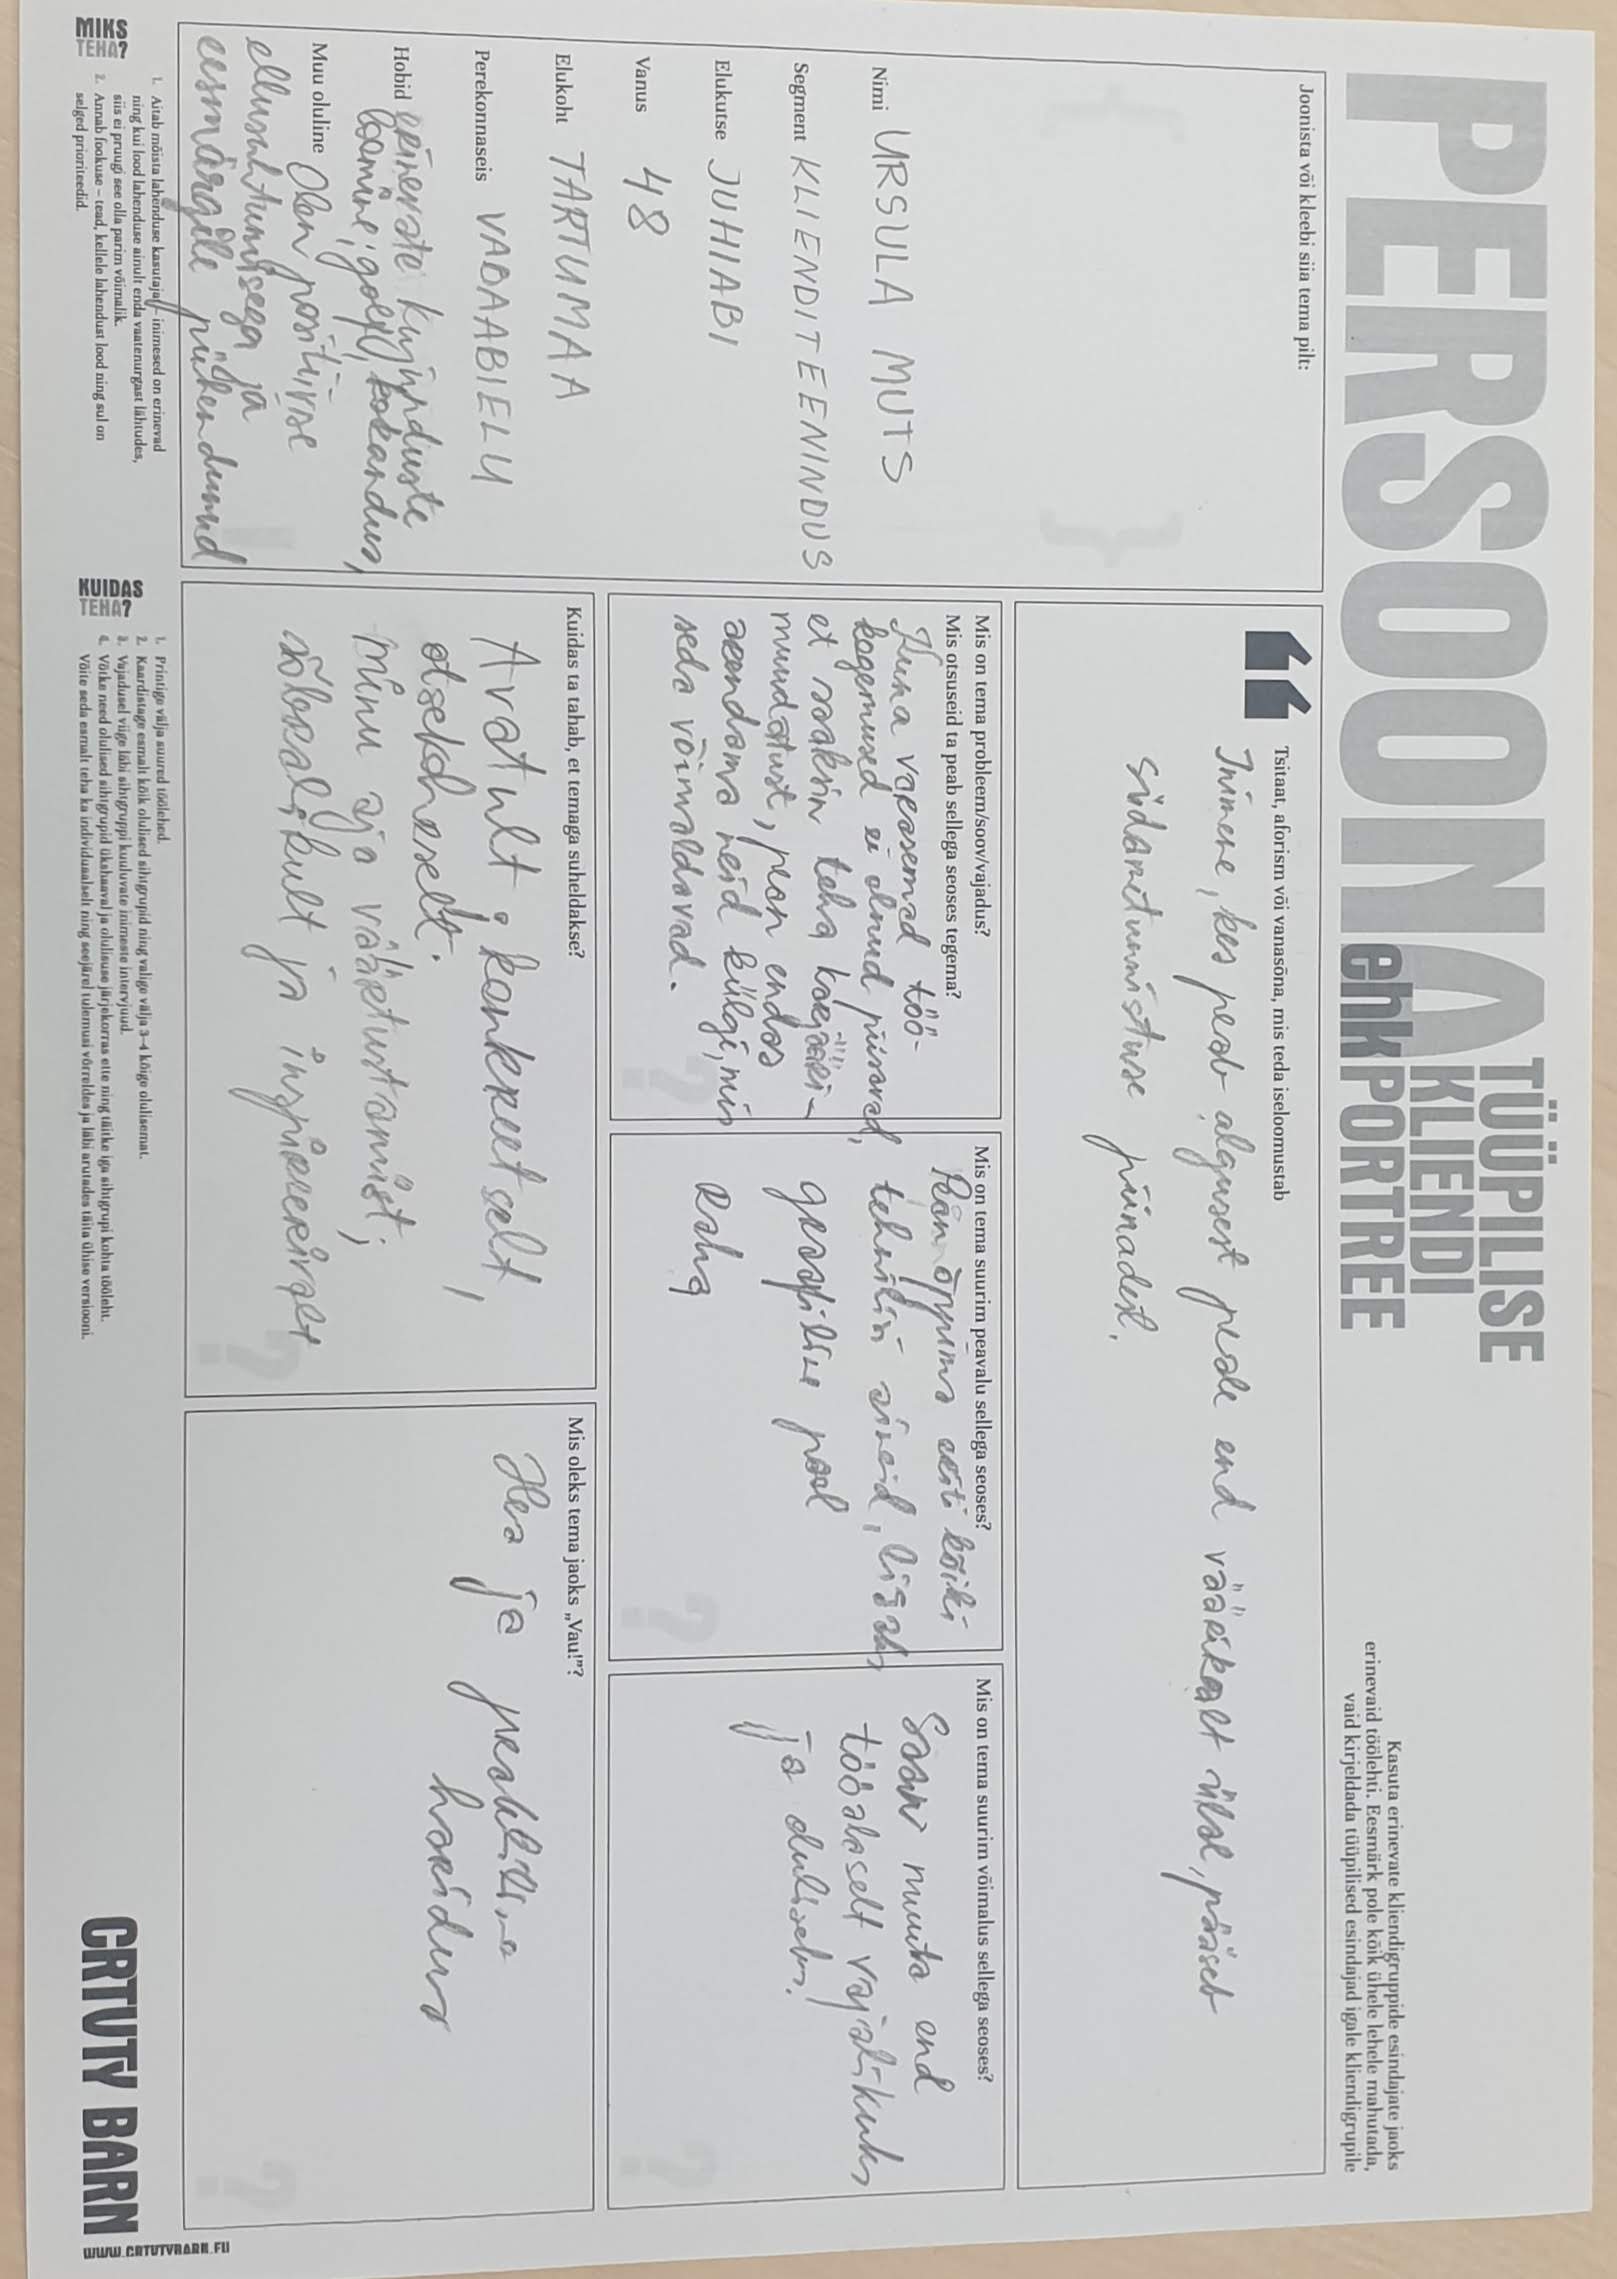 PERSOONA
ehk
TÜÜPILISE
KLIENDI
PORTREE
Kasuta erinevate kliendigruppide esindajate jaoks
erinevaid töölehti. Eesmärk pole kõik ühele lehele mahutada,
vaid kirjeldada tüüpilised esindajad igale kliendigrupile
Joonista või kleebi siia tema pilt:
{ }
Nimi URSULA MUTS
Segment KLIENDITEENINDUS
Elukutse JUHIABI
Vanus 48
Elukoht TARTUMAA
Perekonnaseis VABAABIELU
Hobid erinevate kujunduste
loomine; golf, kokandus,
Muu oluline Olen positiivse
ellusuhtumisega ja
eesmärgile pühendunud
Tsitaat, aforism või vanasõna, mis teda iseloomustab
Inimene, kes peab algusest peale end väärikalt üleval, pääseb
südametunnistuse piinadest.
Mis on tema probleem/soov/vajadus?
Mis otsuseid ta peab sellega seoses tegema?
Kuna varasemad töö-
kogemused ei olnud piisavad,
et saaksin teha karjääri-
muudatust, pean endas
arendama neid külgi, mis
seda võimaldavad.
Mis on tema suurim peavalu sellega seoses?
Pean õppima eriti kõiki
tehnilisi aineid, lisaks
graafiline pool
Raha
Mis on tema suurim võimalus sellega seoses?
Saan muuta end
tööalaselt vajalikuks
ja oluliseks!
Kuidas ta tahab, et temaga suheldakse?
Avatult; konkreetselt,
otsekoheselt.
minu aja väärtustamist;
sõbralikult ja inspireerivalt
Mis oleks tema jaoks „Vau!”?
Hea ja praktiline
haridus
MIKS
TEHA?
1. Aitab mõista lahenduse kasutajat – inimesed on erinevad
ning kui lood lahenduse ainult enda vaatenurgast lähtudes,
siis ei pruugi see olla parim võimalik.
2. Annab fookuse – tead, kellele lahendust lood ning sul on
selged prioriteedid.
KUIDAS
TEHA?
1. Printige välja suured töölehed.
2. Kaardistage esmalt kõik olulised sihtgrupid ning valige välja 3–4 kõige olulisemat.
3. Vajadusel viige läbi sihtgruppi kuuluvate inimeste intervjuud.
4. Võtke need olulised sihtgrupid ükshaaval ja olulisuse järjekorras ette ning täitke iga sihtgrupi kohta tööleht.
Võite seda esmalt teha ka individuaalselt ning seejärel tulemusi võrreldes ja läbi arutades täita ühise versiooni.
CRTVTY BARN
WWW.CRTVTYBARN.EU